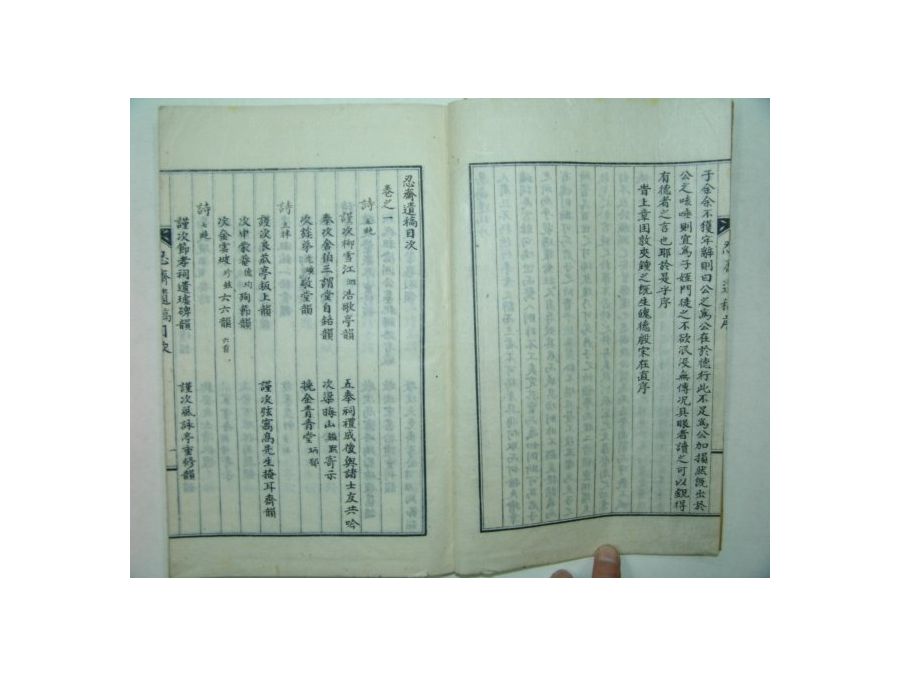 于余余不獲牢辭則曰公之爲公在於德行此不足爲公加損然旣出於
公之咳唾則宜爲子姪門徒之不欲泯沒無傳况具眼者讀之可以覰得
有德者之言也耶於是乎序
旹上章困敦夾鍾之旣生魄德殷宋在直序
忍齋遺稿序
忍齋遺稿目次
卷之一
詩 五絶
謹次柳雪江 泗 浩歌亭韻
五奉祠禮成後與諸士友共吟
奉次舍伯三謂堂自銘韻
次梁晦山 寄示
敬堂韻
挽金青青堂
詩 五律
謹次良苽亭板上韻
謹次弦窩高先生掩耳齋韻
詩 七絶
次申蒙菴 德均 殉節韻
次金雲坡 六六韻 六首
謹次節孝祠遺墟碑韻
謹次風詠亭重修韻
忍齋遺稿目次
一